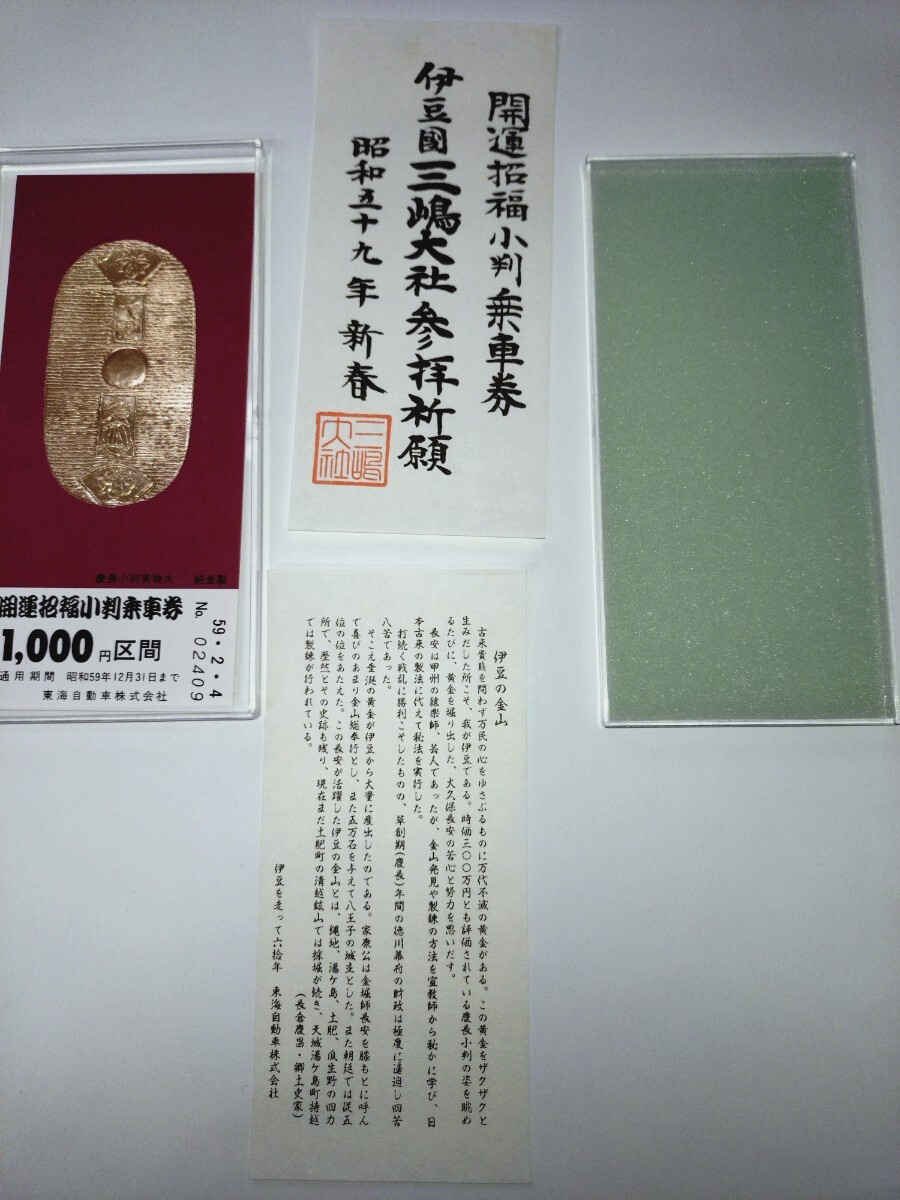 開運招福小判乗車券
伊豆國三嶋大社参拝祈願
昭和五十九年 新春
三嶋
大社
慶長小判実物大 純金製
開運招福小判乗車券
1,000円区間
通用期間 昭和59年12月31日まで
東海自動車株式会社
No. 02409
59・2・4
伊豆の金山
古来貴賎を問わず万民の心をゆさぶるものに万代不滅の黄金がある。この黄金をザクザクと
生みだした所こそ、我が伊豆である。時価三〇〇万円とも評価されている慶長小判の姿を眺め
るたびに、黄金を掘り出した、大久保長安の苦心と努力を思いだす。
長安は甲州の猿楽師、芸人であったが、金山発見や製錬の方法を宣教師から秘かに学び、日
本古来の製法に代えて秘法を実行した。
打続く戦乱に勝利こそしたものの、草創期(慶長)年間の徳川幕府の財政は極度に逼迫し四苦
八苦であった。
そこえ垂涎の黄金が伊豆から大量に産出したのである。家康公は金堀師長安を膝もとに呼ん
で喜びのあまり金山総奉行とし、また五万石を与えて八王子の城主とした。また朝廷では従五
位の位をあたえた。この長安が活躍した伊豆の金山とは、縄地、湯ケ島、土肥、瓜生野の四カ
所で、歴然とその史跡も残り、現在まだ土肥町の清越鉱山では採堀が続き、天城湯ケ島町持越
では製錬が行われている。
(長倉慶昌・郷土史家)
伊豆を走って六拾年 東海自動車株式会社